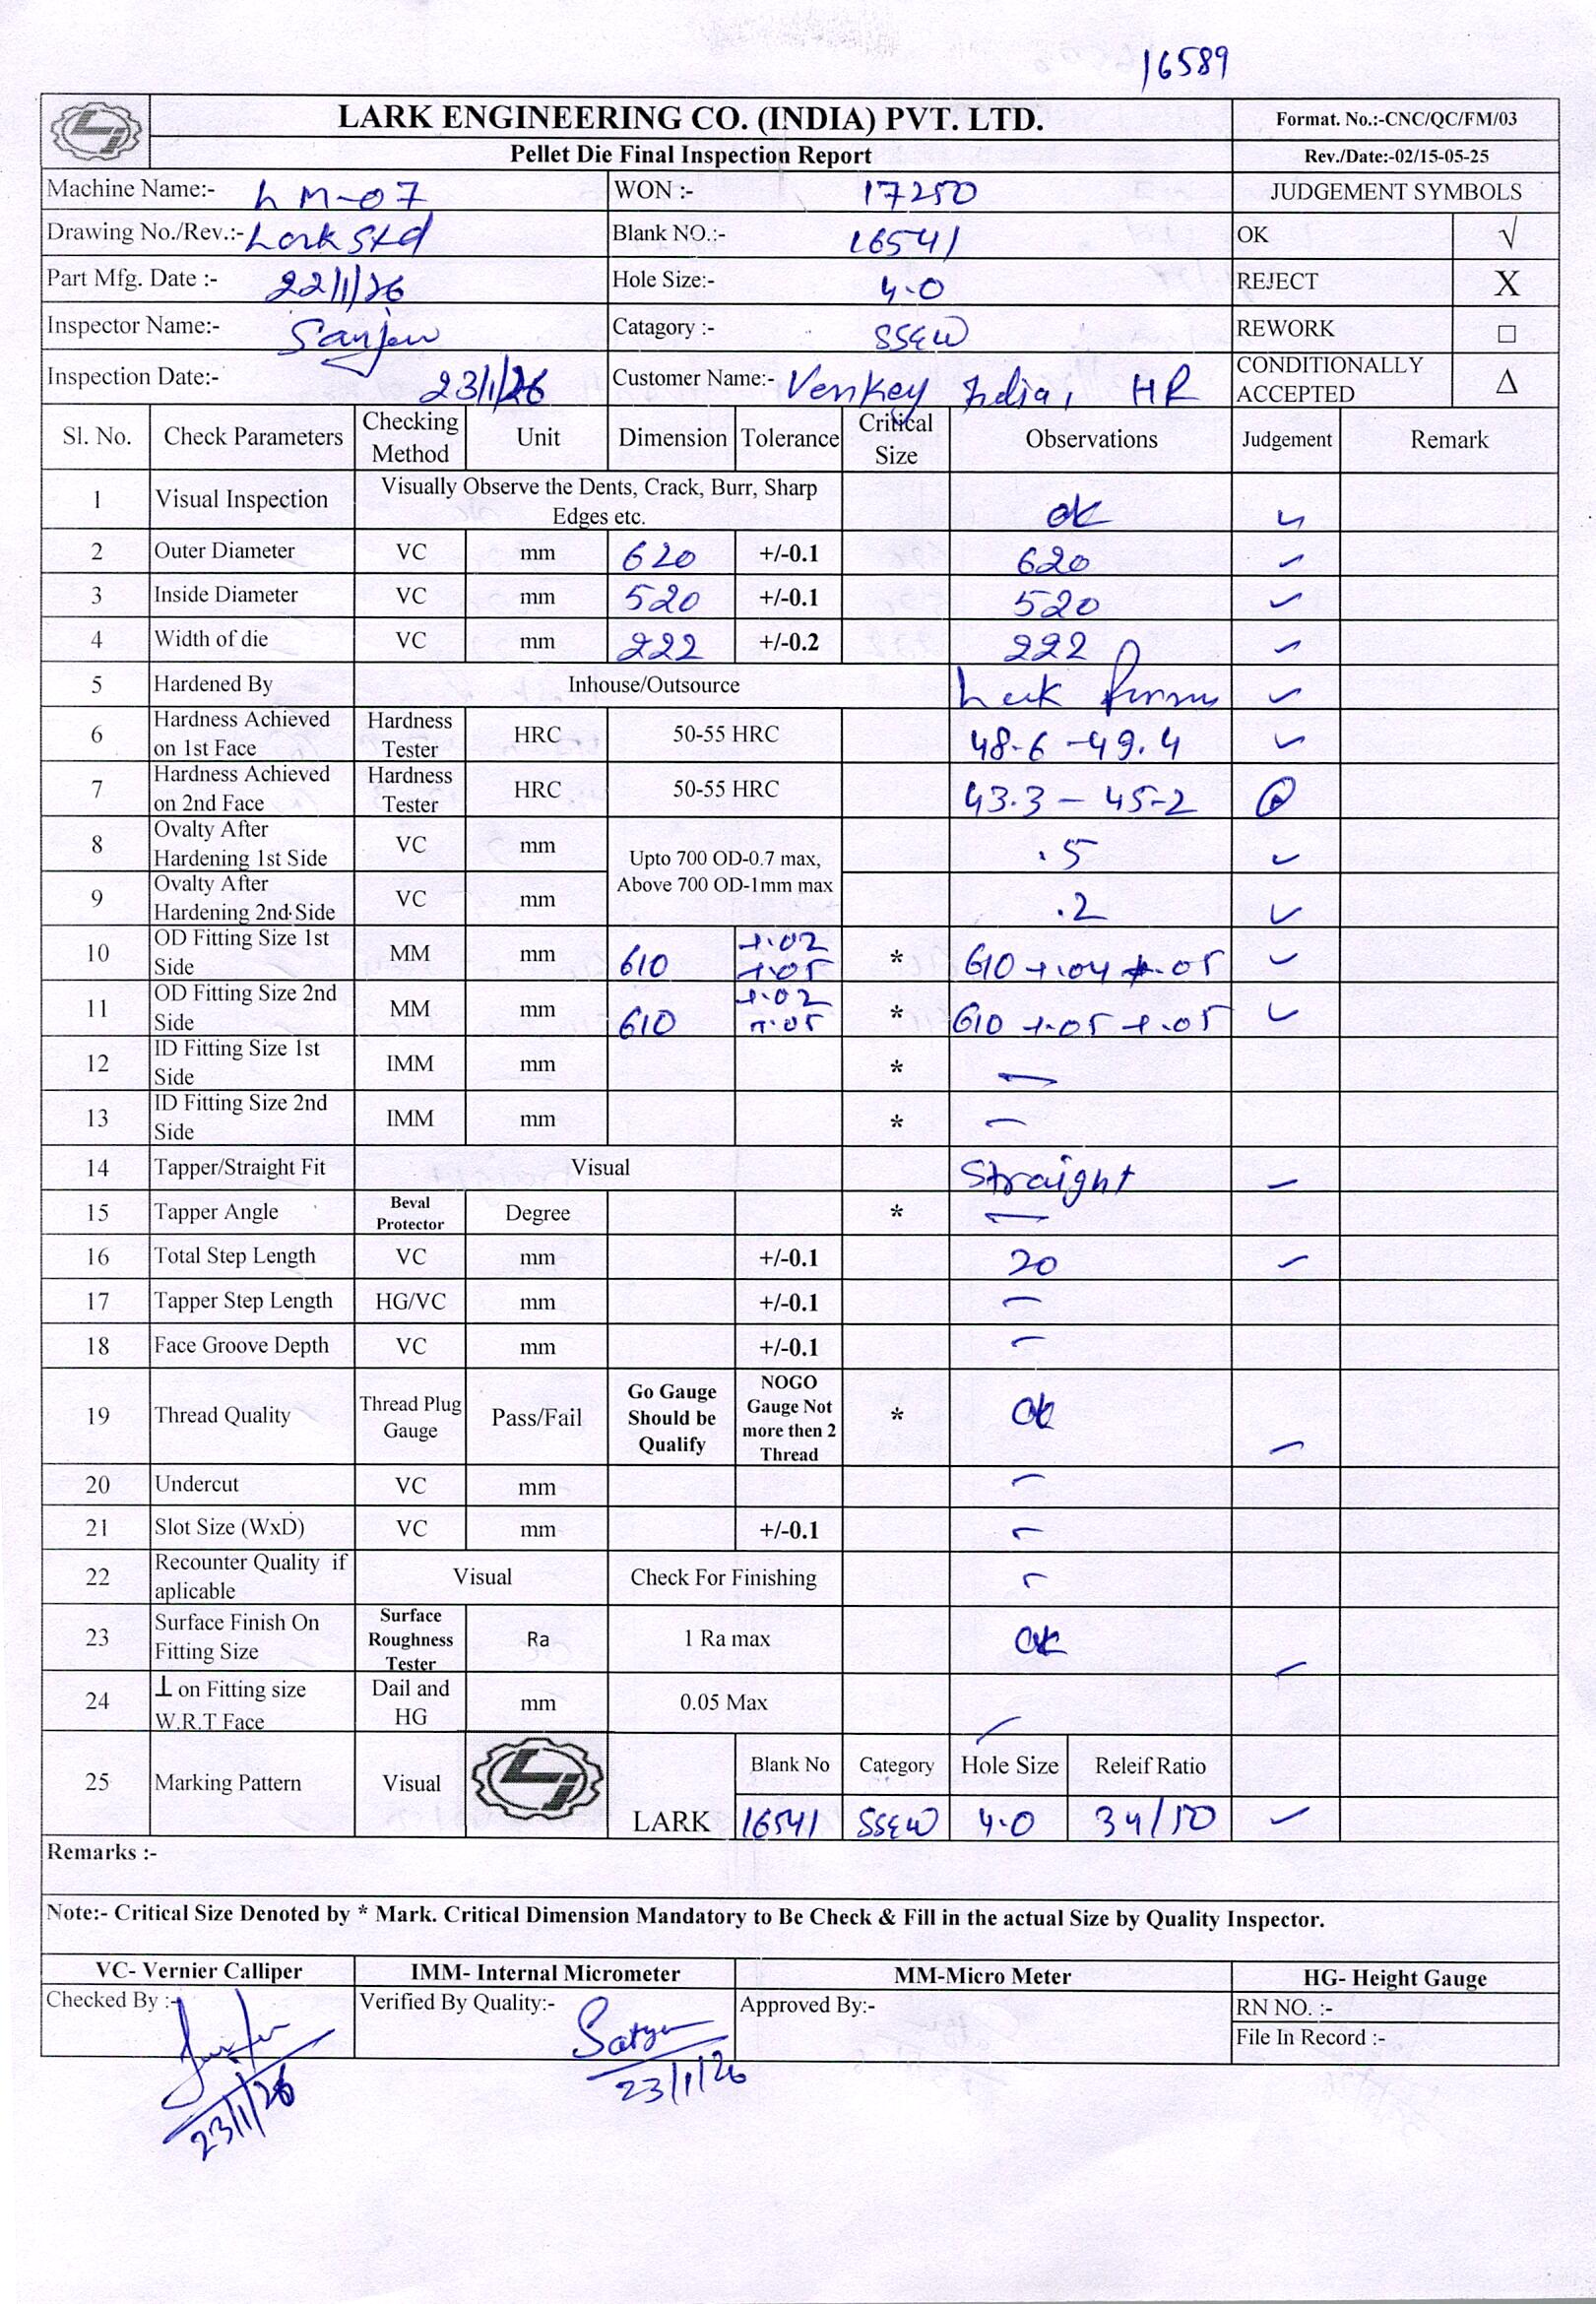 16589
LARK ENGINEERING CO. (INDIA) PVT. LTD.
Format. No.:-CNC/QC/FM/03
Pellet Die Final Inspection Report
Rev./Date:-02/15-05-25
Machine Name:- LM-07 WON :- 17250 JUDGEMENT SYMBOLS
Drawing No./Rev.:- Lark Std Blank NO.:- 16541 OK √
Part Mfg. Date :- 22/1/26 Hole Size:- 4.0 REJECT X
Inspector Name:- Sanjeev Catagory :- SSEW REWORK □
Inspection Date:- 23/1/26 Customer Name:- Venkey India, HR CONDITIONALLY ACCEPTED Δ
Sl. No. Check Parameters Checking Method Unit Dimension Tolerance Critical Size Observations Judgement Remark
1 Visual Inspection Visually Observe the Dents, Crack, Burr, Sharp Edges etc. ok ✓
2 Outer Diameter VC mm 620 +/-0.1 620 ✓
3 Inside Diameter VC mm 520 +/-0.1 520 ✓
4 Width of die VC mm 222 +/-0.2 222 ✓
5 Hardened By Inhouse/Outsource ✓
6 Hardness Achieved on 1st Face Hardness Tester HRC 50-55 HRC 48-6 -49.4 ✓
7 Hardness Achieved on 2nd Face Hardness Tester HRC 50-55 HRC 43.3 - 45-2
8 Ovalty After Hardening 1st Side VC mm Upto 700 OD-0.7 max, Above 700 OD-1mm max .5 ✓
9 Ovalty After Hardening 2nd Side VC mm .2 ✓
10 OD Fitting Size 1st Side MM mm 610 +.02 +.05 * 610 +.04 +.05 ✓
11 OD Fitting Size 2nd Side MM mm 610 +.02 +.05 * 610 +.05 +.05 ✓
12 ID Fitting Size 1st Side IMM mm * —
13 ID Fitting Size 2nd Side IMM mm * —
14 Tapper/Straight Fit Visual Straight ✓
15 Tapper Angle Beval Protector Degree * —
16 Total Step Length VC mm +/-0.1 20 ✓
17 Tapper Step Length HG/VC mm +/-0.1 —
18 Face Groove Depth VC mm +/-0.1 —
19 Thread Quality Thread Plug Gauge Pass/Fail Go Gauge Should be Qualify NOGO Gauge Not more then 2 Thread * ok ✓
20 Undercut VC mm —
21 Slot Size (WxD) VC mm +/-0.1 —
22 Recounter Quality if aplicable Visual Check For Finishing —
23 Surface Finish On Fitting Size Surface Roughness Tester Ra 1 Ra max ok ✓
24 ⊥ on Fitting size W.R.T Face Dail and HG mm 0.05 Max —
25 Marking Pattern Visual LARK Blank No Category Hole Size Releif Ratio
16541 SSEW 4.0 34/50 ✓
Remarks :-
Note:- Critical Size Denoted by * Mark. Critical Dimension Mandatory to Be Check & Fill in the actual Size by Quality Inspector.
VC- Vernier Calliper IMM- Internal Micrometer MM-Micro Meter HG- Height Gauge
Checked By :- Verified By Quality:- Satyam Approved By:- RN NO. :-
File In Record :-
23/1/26 23/1/26